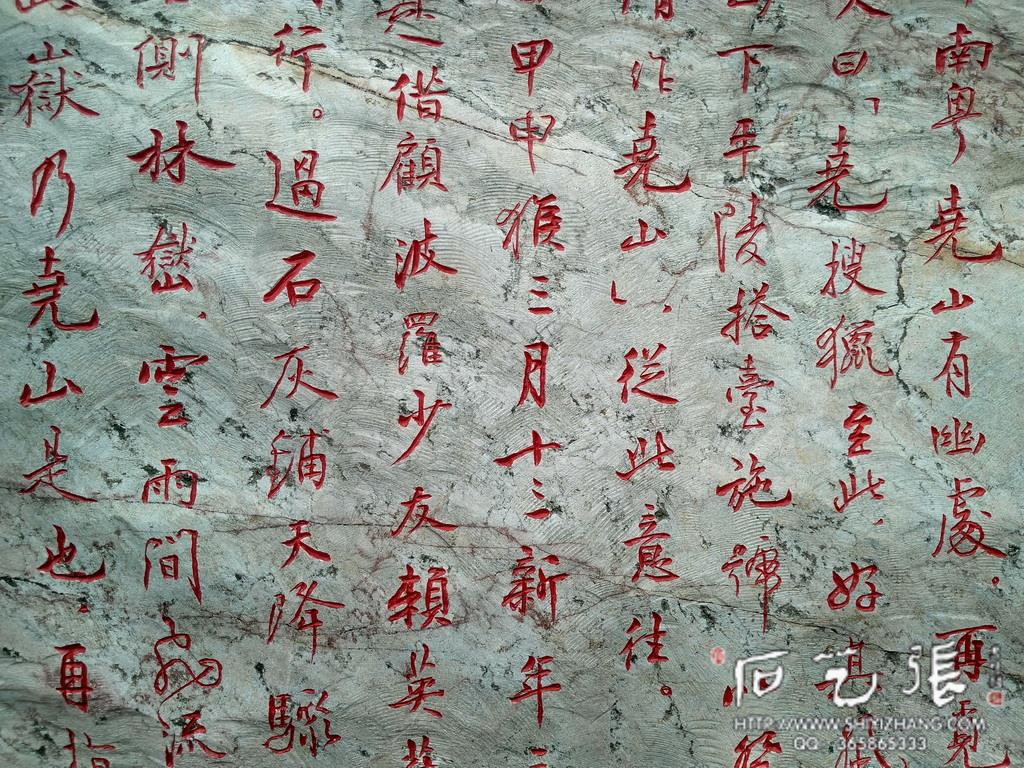 南粤堯山有幽處．再
曰，堯搜獵至此．好甚
下平陵搭臺施
作堯山，從此意往。
甲申猴三月十三新年二
偕顧波羅少友賴英
行。過石灰鋪天降驟
側林嶽．雲雨間 流
嶽乃堯山是也．再指
石艺張
HTTP://WWW.SHIYIZHANG.COM
QQ：365865333